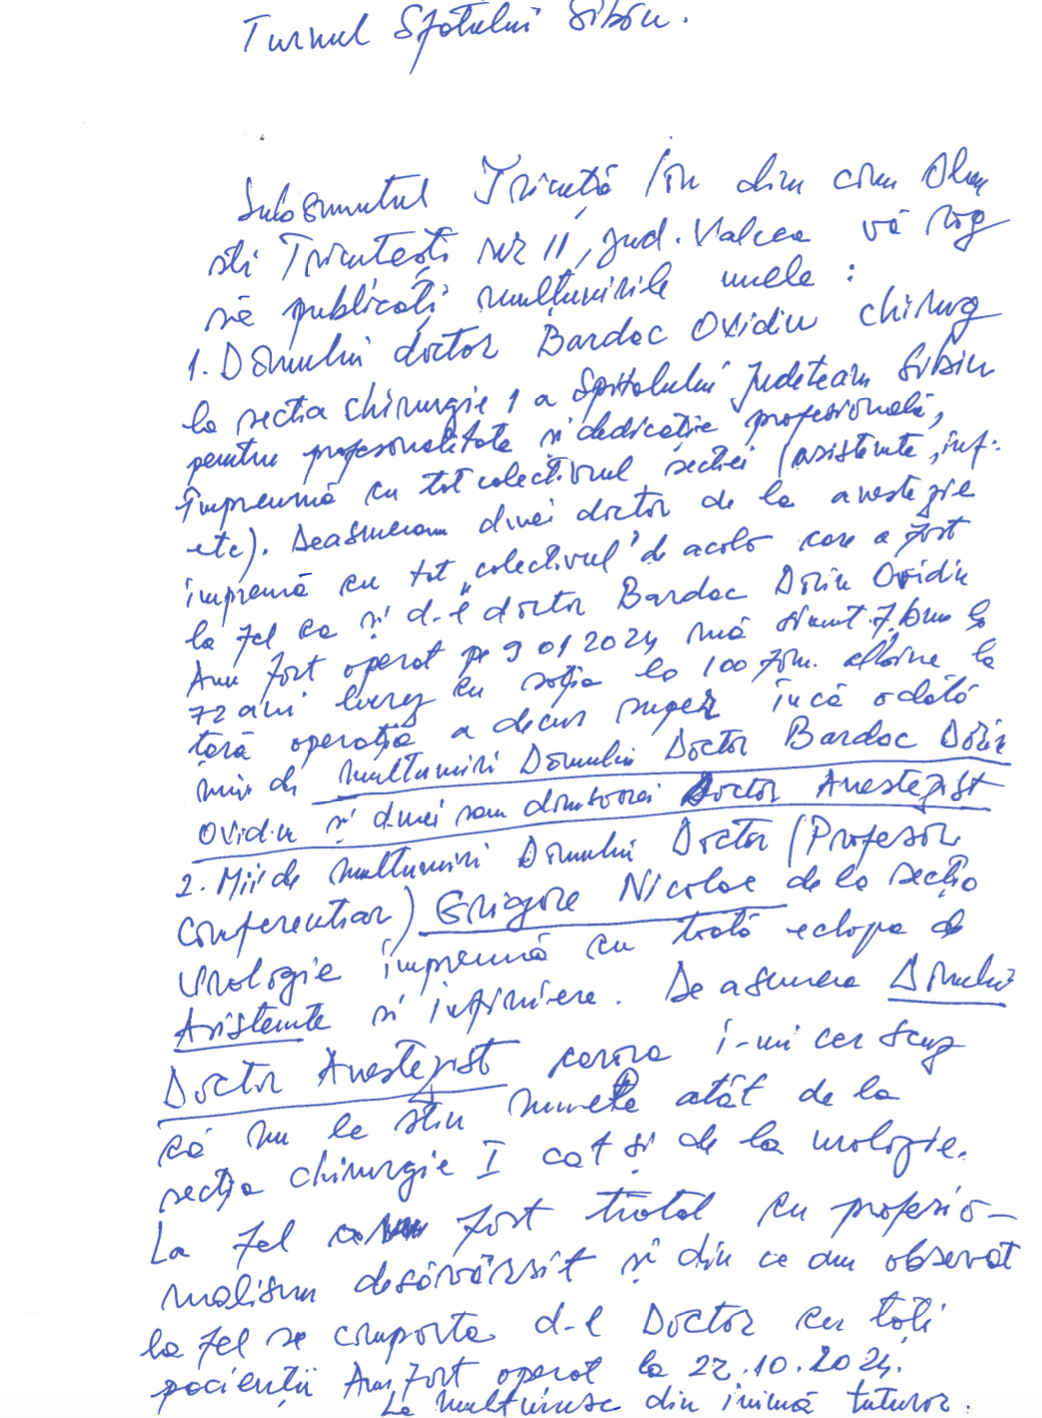 Turnul Sfatului Sibiu.
Subsemnatul Tricuță Ion din com Olan
ști Tricutești nr 11, jud. Valcea vă rog
să publicați mulțumirile mele :
1. Domului doctor Bardac Ovidiu chirurg
la sectia chirurgie 1 a Spitalului Judetean Sibiu
pentru profesonalitate si dedicație profesională,
împreună cu tot colectivul sectiei (asistente, inf.
etc). Deasmenea dnei doctor de la anestezie
împreună cu tot „colectivul" de acolo care a fost
la fel ca și d-l doctor Bardac Dorin Ovidiu
Am fost operat pe 9 01 2024 mă simt f. bine la
72 ani lucrez cu soția la 100 fam. albine la
țară operația a decurs super încă odată
mii de multumiri Domului Doctor Bardac Dorin
Ovidiu și d-nei sau domnoarei Doctor Anestezist
2. Mii de multumiri Domului Doctor (Profesor
Conferentiar) Grigore Nicolae de la secția
Urologie împreună cu toată echipa de
Asistente si infirmiere. De asmenea Domului
Doctor Anestezist carora î-mi cer scuz
că nu le stiu numele atât de la
secția chirurgie I cat și de la urologie.
La fel am fost tratat cu profesio-
nalism desăvârsit si din ce am observat
la fel se comporta d-l Doctor cu toți
pacienții Am fost operat la 22.10.2024.
Le multumesc din inimă tuturor.